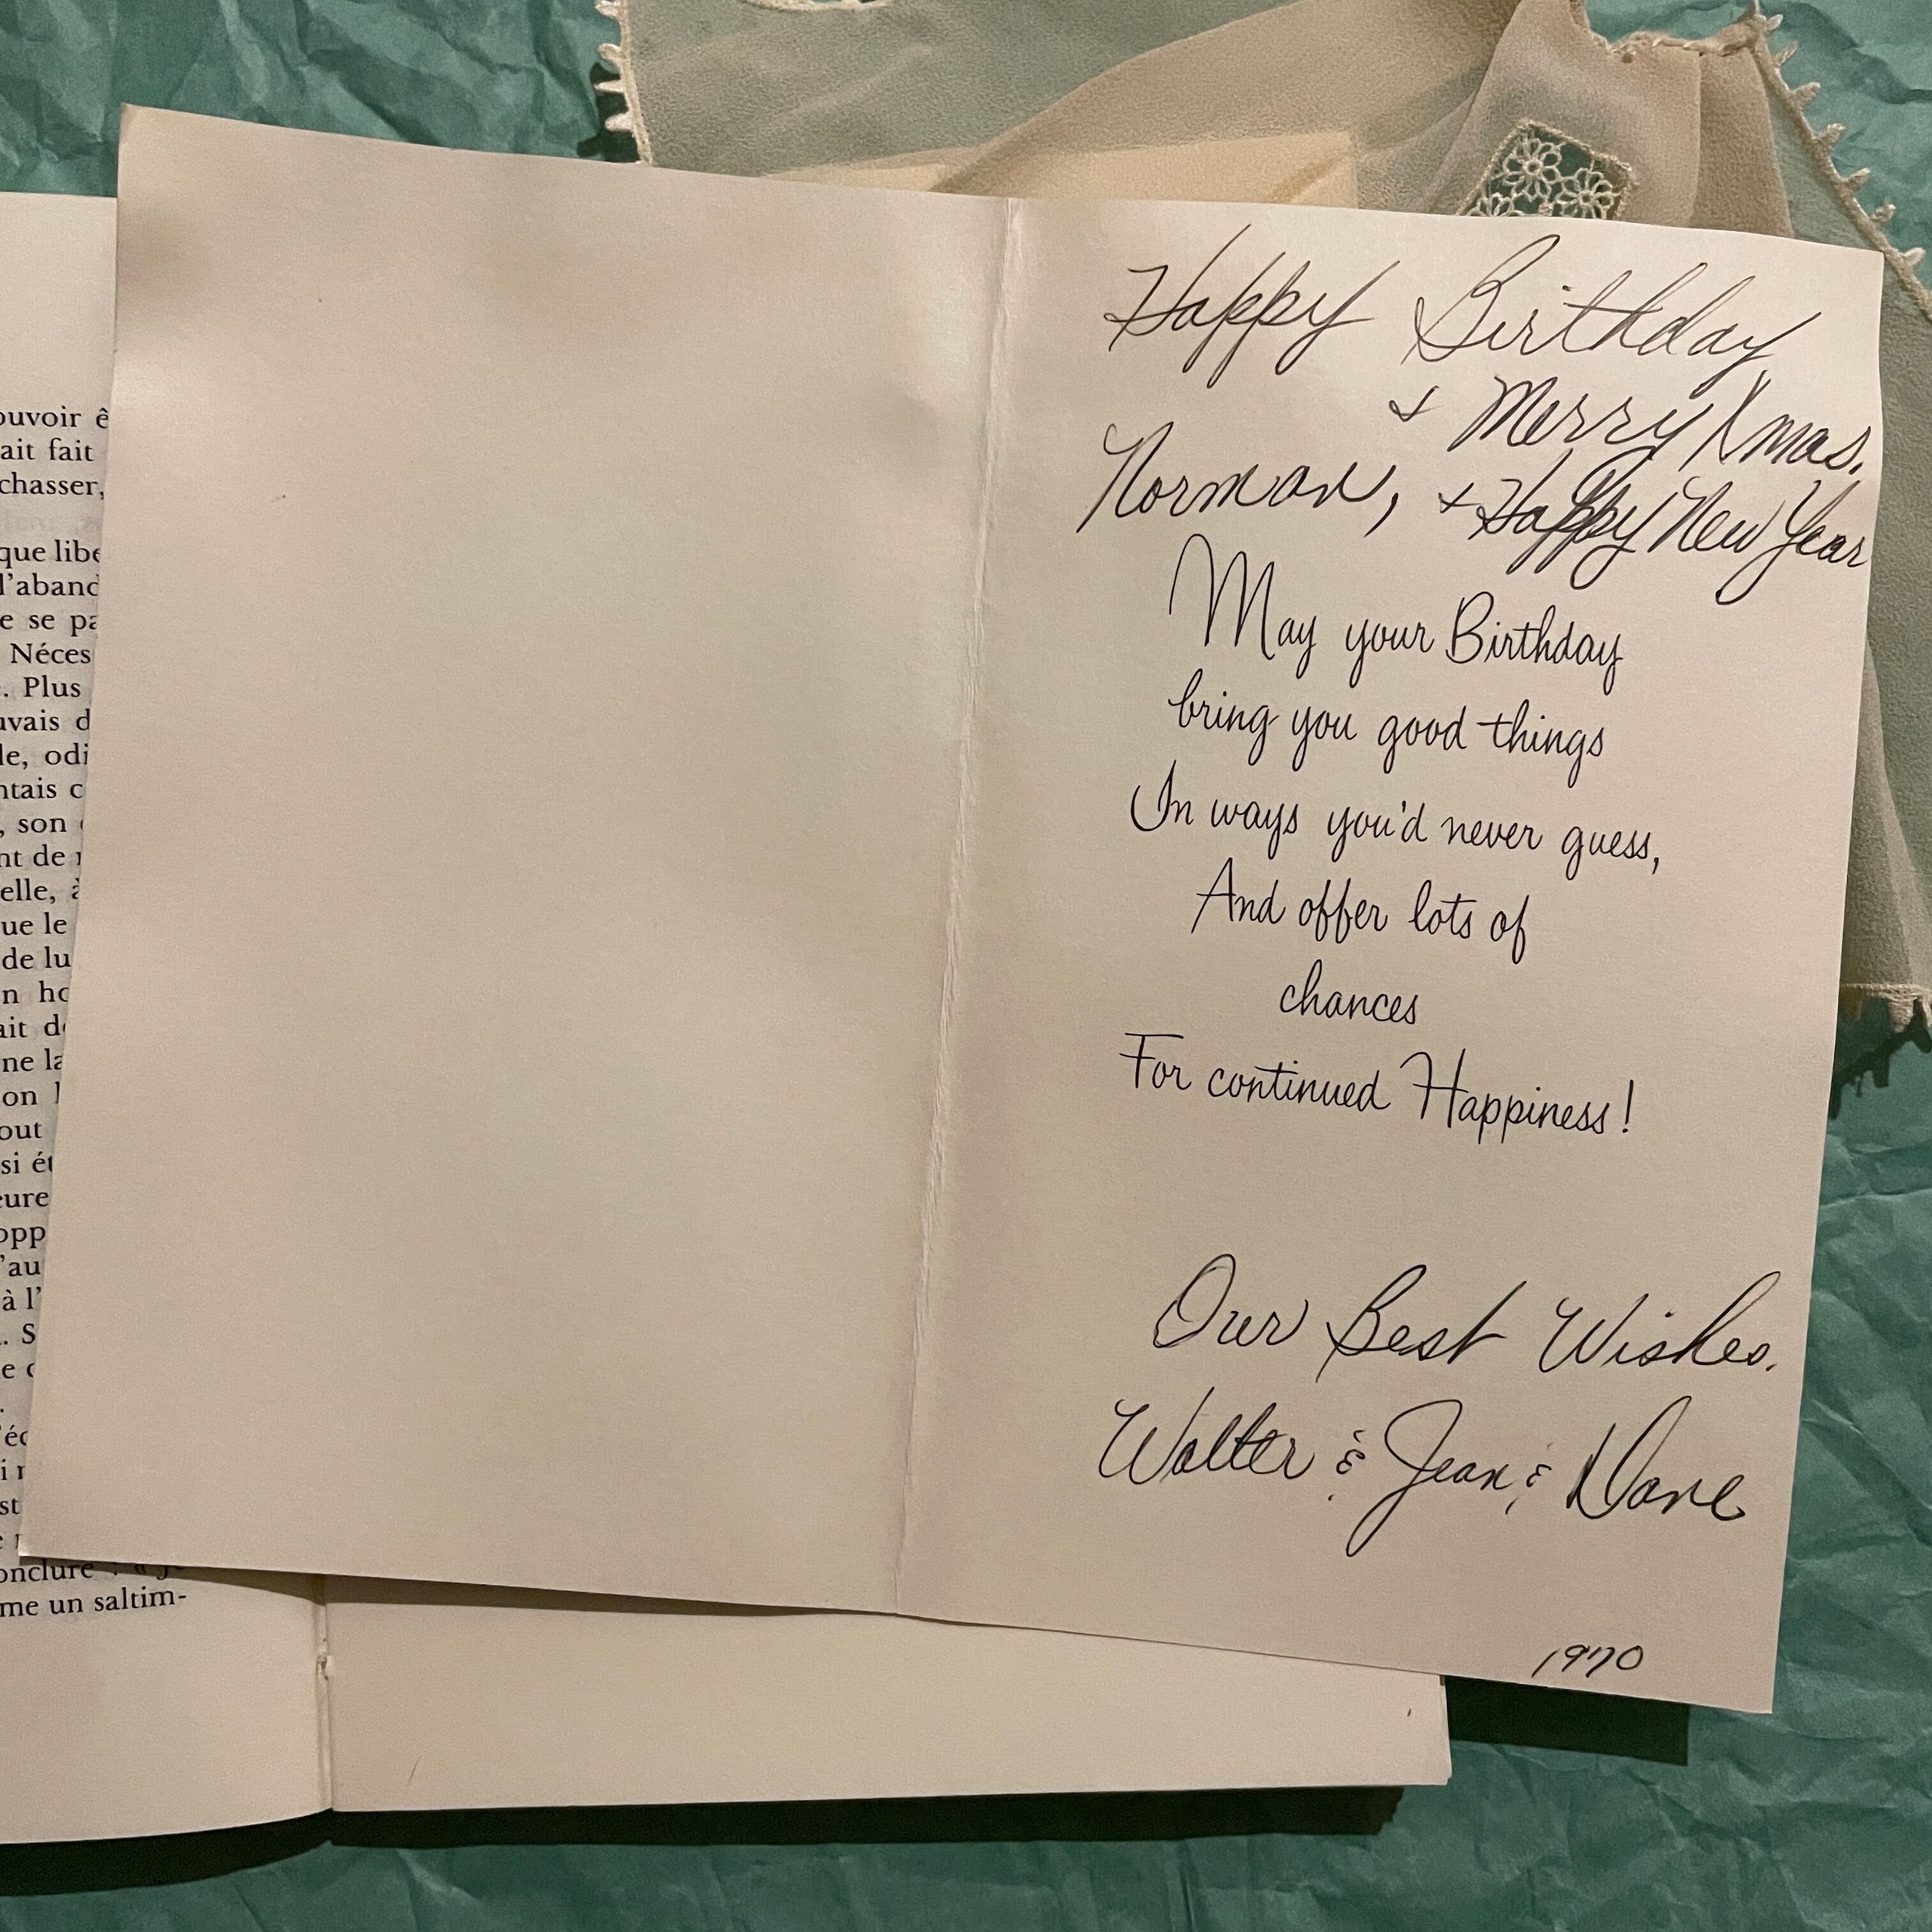 ouvoir ê
ait fait
chasser,
que libe
l'aband
e se pa
Néces
. Plus
uvais d
le, odi
ntais c
, son
nt de
elle, à
ue le
de lu
n ho
ait de
ne la
on l
out
si ét
eure
opp
'au
à l'
. S
e c
'éc
i r
st
onclure : « J
me un saltim-
Happy Birthday
& Merry Xmas.
Norman, & Happy New Year
May your Birthday
bring you good things
In ways you'd never guess,
And offer lots of
chances
For continued Happiness!
Our Best Wishes.
Walter & Jean & Dave
1970